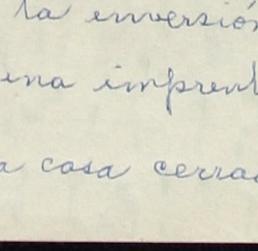 la inversión
una imprent
a casa cerrad